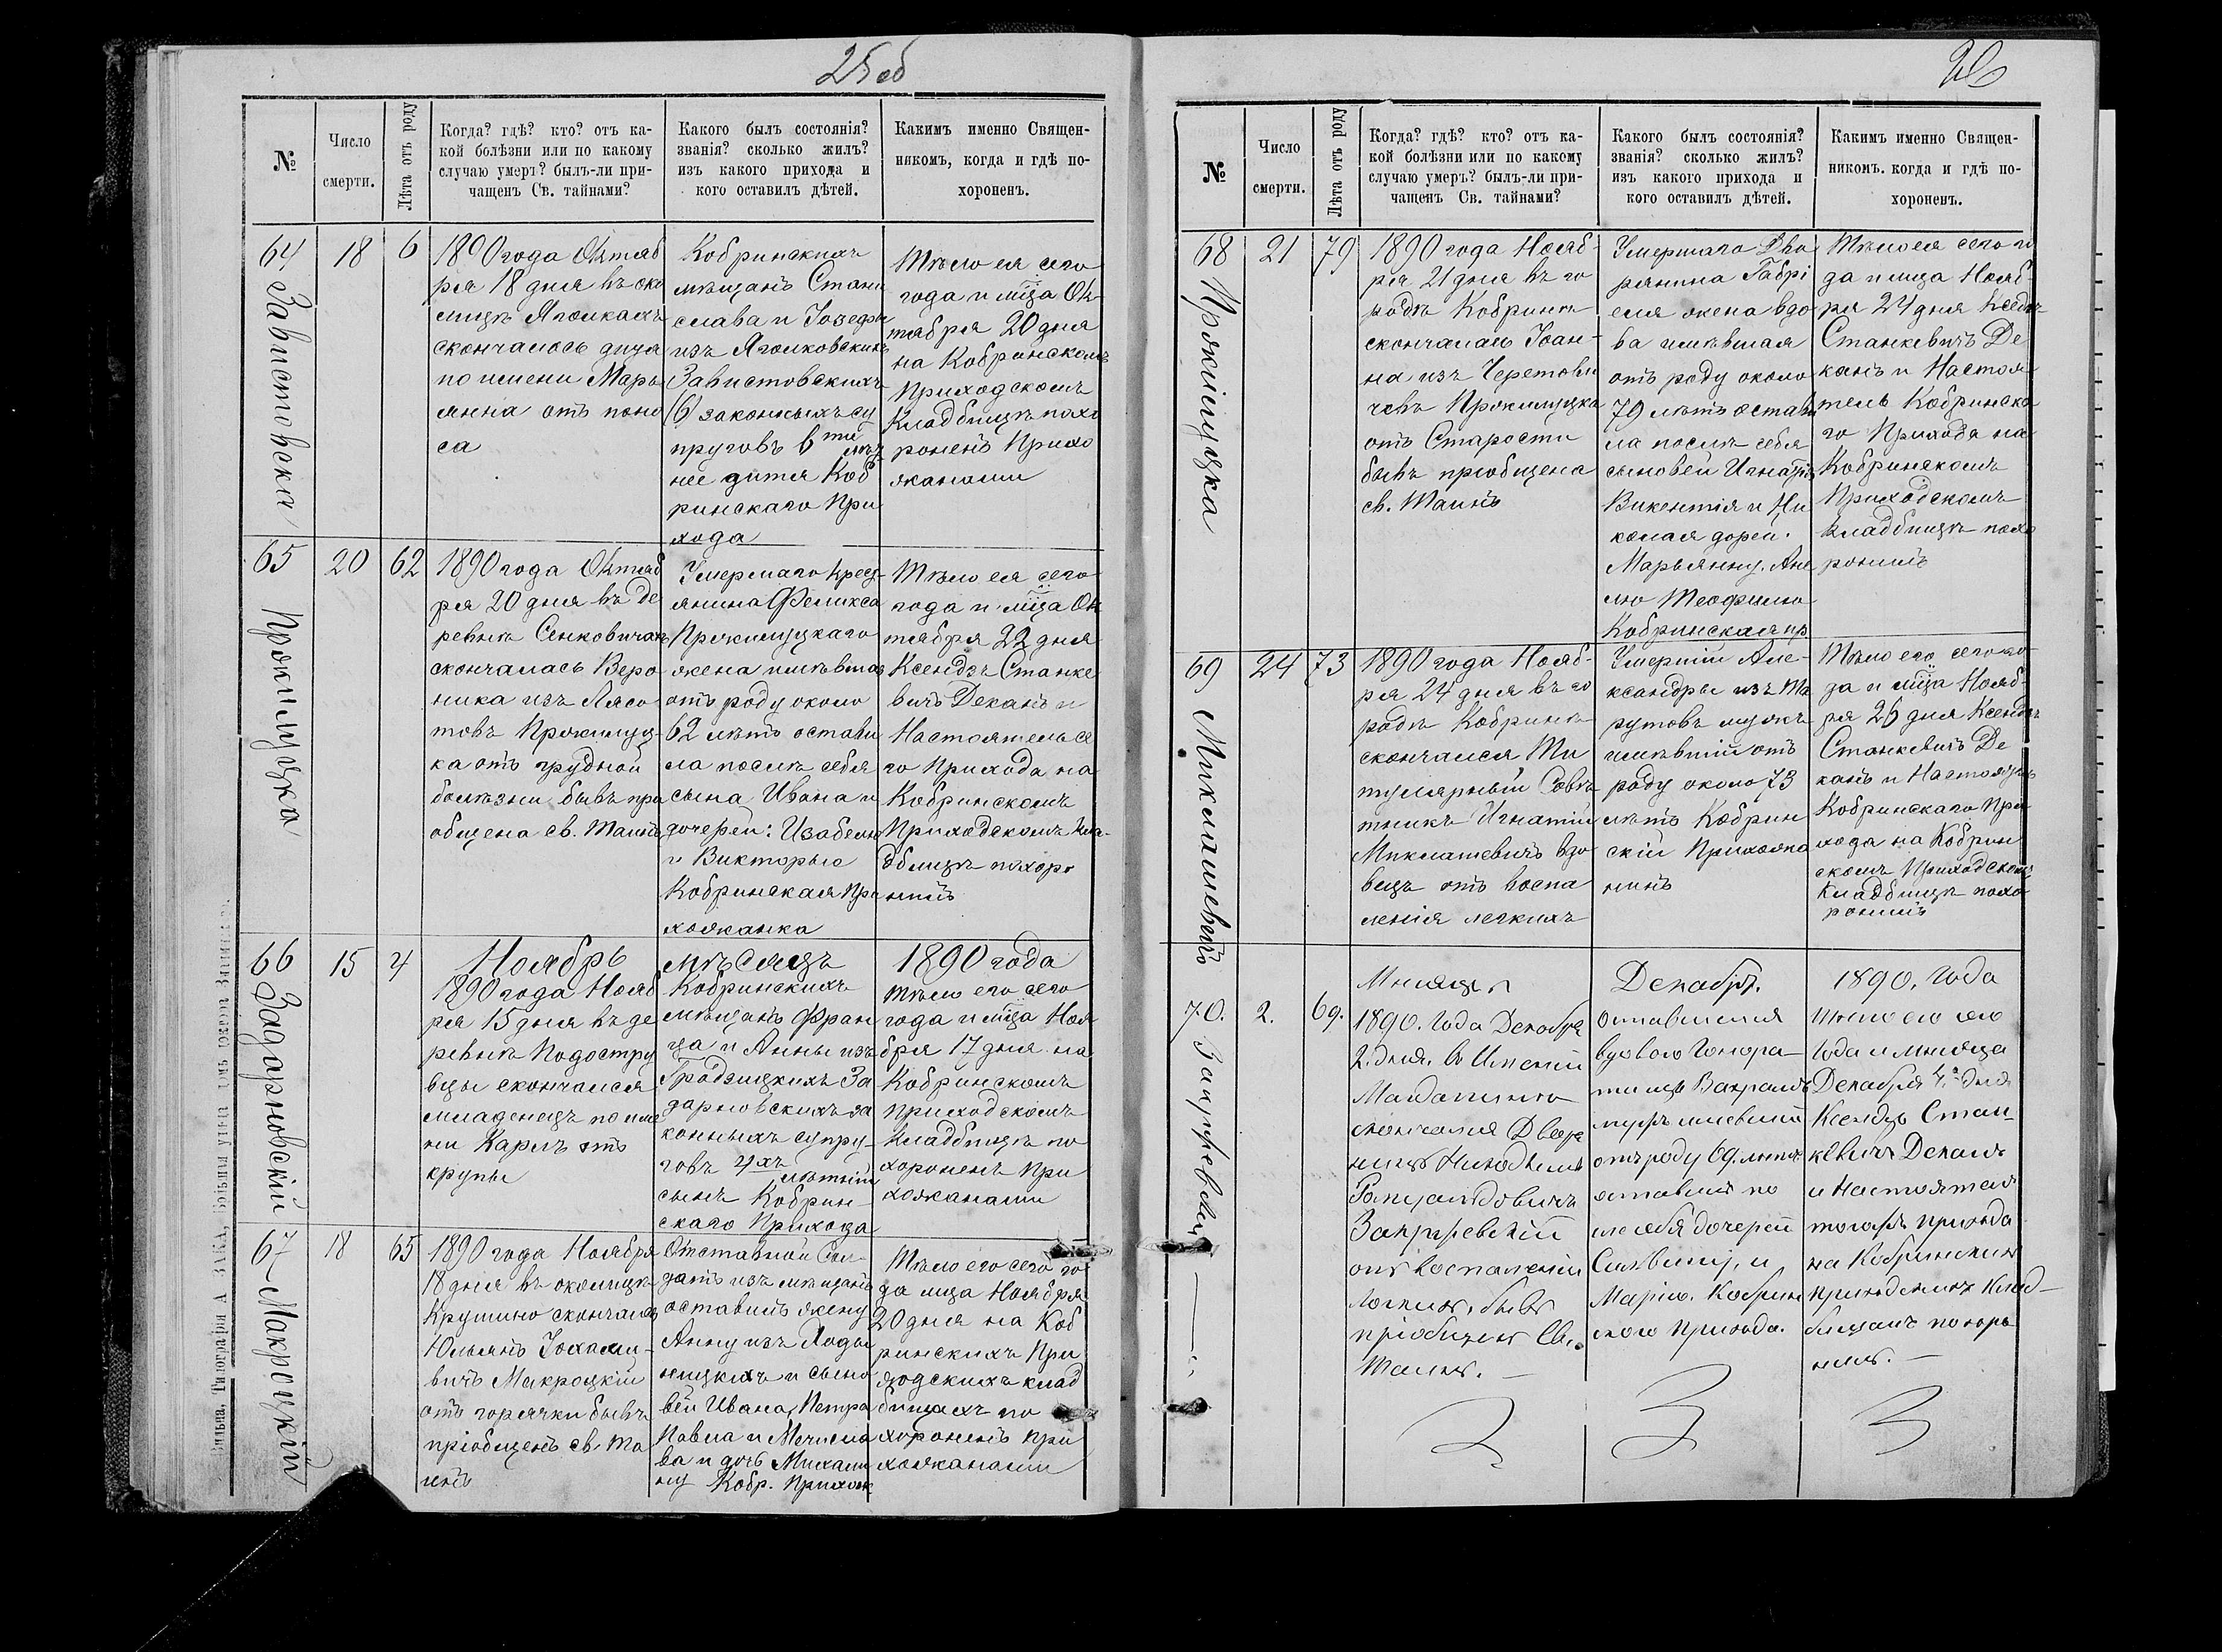 25 об
№
Число
смерти.
Лѣта отъ роду
Когда? гдѣ? кто? отъ ка-
кой болѣзни или по какому
случаю умеръ? былъ-ли при-
чащенъ Св. тайнами?
Какого былъ состоянія?
званія? сколько жилъ?
изъ какого прихода и
кого оставилъ дѣтей.
Какимъ именно Священ-
никомъ, когда и гдѣ по-
хороненъ.
64
Завистовска
18
6
1890 года Октяб
ря 18 дня въ око
лицѣ Яголкахъ
скончалось дитя
по имени Марь
янна отъ поно
са
Кобринскихъ
мѣщанъ Стани
слава и Іозефы
изъ Яголковскихъ
Завистовскихъ
(6) законныхъ су
пруговъ 6 ти лѣт
нее дитя Коб
ринскаго При
хода
Тѣло ея сего
года и мца Ок
тября 20 дня
на Кобринскомъ
Приходскомъ
Кладбищѣ похо
ронено Прихо
жанами
65
Прожилуцка
20
62
1890 года Октяб
ря 20 дня въ де
ревнѣ Сенковичахъ
скончалась Веро
ника изъ Лясо
товъ Прожилуц-
ка отъ грудной
болѣзни бывъ прі
общена св. Таинъ
Умершаго Крест-
янина Феликса
Прожилуцкаго
жена имѣвшая
отъ роду около
62 лѣтъ остави
ла послѣ себя
сына Ивана и
дочерей: Изабелю
и Викторью
Кобринская При
хожанка
Тѣло ея сего
года и мца Ок
тября 22 дня
Ксендзъ Станке
вичъ Деканъ и
Настоятель се
го Прихода на
Кобринскомъ
Приходскомъ Кла-
дбищѣ похоро
нилъ
Ноябрь мѣсяцъ 1890 года
66
Задарновскій
15
4
1890 года Нояб
ря 15 дня въ де
ревнѣ Подостру
вцы скончался
младенецъ по име
ни Карлъ отъ
крупы
Кобринскихъ
мѣщанъ Фран
ца и Анны изъ
Гродзицкихъ За
дарновскихъ за
конныхъ супру-
говъ 4 хъ
лѣтній
сынъ Кобрин-
скаго Прихода
Тѣло его сего
года и мца Ноя
бря 17 дня на
Кобринскомъ
Приходскомъ
кладбищѣ по
хоронено При
хожанами
67
Макроцкій
18
65
1890 года Ноября
18 дня въ околицѣ
Крушино скончался
Юльянъ Іохами-
вичъ Макроцкій
отъ горячки бывъ
пріобщенъ св. Та
инъ
Отставной Сол-
датъ изъ мѣщанъ
оставилъ жену
Анну изъ Ходы
ницкихъ и сыно
вей Ивана, Петра
Павла и Мечисла
ва и дочь Михали
ну Кобр. Прихож
Тѣло его сего го
да мца Ноября
20 дня на Коб
ринскихъ При
ходскихъ клад
бищахъ по
хоронено при
хожанами
26
№
Число
смерти.
Лѣта отъ роду
Когда? гдѣ? кто? отъ ка-
кой болѣзни или по какому
случаю умеръ? былъ-ли при-
чащенъ Св. тайнами?
Какого былъ состоянія?
званія? сколько жилъ?
изъ какого прихода и
кого оставилъ дѣтей.
Какимъ именно Священ-
никомъ. когда и гдѣ по-
хороненъ.
68
Прожилуцка
21
79
1890 года Нояб-
ря 21 дня въ го
родѣ Кобринѣ
скончалась Іоан-
на изъ Черетови
човъ Прожилуцка
отъ Старости
бывъ пріобщена
св. Таинъ
Умершаго Дво
рянина Габрі
еля жена вдо
ва имѣвшая
отъ роду около
79 лѣтъ остави
ла послѣ себя
сыновей Игнатія
Викентія и Ни
колая дочей.
Марьянну, Ане
лю Теофилю
Кобринская пр
Тѣло ея сего го
да и мца Нояб-
ря 24 дня Ксендзъ
Станкевичъ Де
канъ и Настоя
тель Кобринска
го Прихода на
Кобринскомъ
Приходскомъ
кладбищѣ похо
ронилъ
69
Миклашевичъ
24
73
1890 года Нояб-
ря 24 дня въ го
родѣ Кобринѣ
скончался Ти
тулярный Совѣ
тникъ Игнатій
Миклашевичъ вдо
вецъ отъ воспа
ленія легкихъ
Умершій Але-
ксандры изъ Ма
рутовъ мужъ
имѣвшій отъ
роду около 73
лѣтъ Кобрин
скій Прихожа
нинъ
Тѣло его сего го-
да и мца Нояб-
ря 26 дня Ксендзъ
Станкевичъ Де
канъ и Настоятель
Кобринскаго При
хода на Кобрин
скомъ Приходскомъ
Кладбищѣ похо
ронилъ
Мнсяцъ Декабрь. 1890. Года
70.
Закржевскій
2.
69.
1890. Года Декабря
2. дня. въ Имѣніи
скончался Дворя
нинъ
Закржевскій
отъ воспаленія
Легкихъ, бывъ
пріобщенъ Св.
Таинъ. —
вдовою Гонора-
мужъ имевшій
отъ роду 69. лѣтъ
оставилъ по
сле себя дочерей
и
Марію. Кобрин
скаго Прихода.
Тѣло его сего
Года и Мнсяца
Декабря 4. дня
Ксендзъ Стан-
кевичъ Деканъ
и Настоятель
тогожъ прихода
на Кобринскихъ
приходскихъ Клад-
бищахъ похоро
нилъ. —